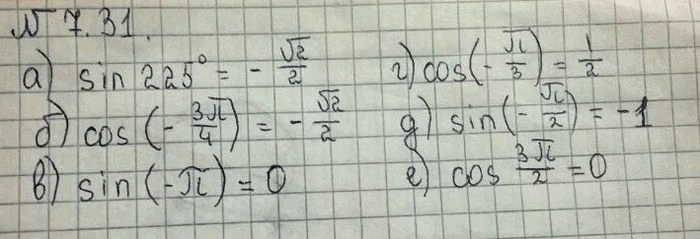 N 7.31.
а) sin 225° = - √2/2
б) cos (- 3π/4) = - √2/2
в) sin (-π) = 0
г) cos (- π/3) = 1/2
д) sin (- π/2) = -1
е) cos 3π/2 = 0